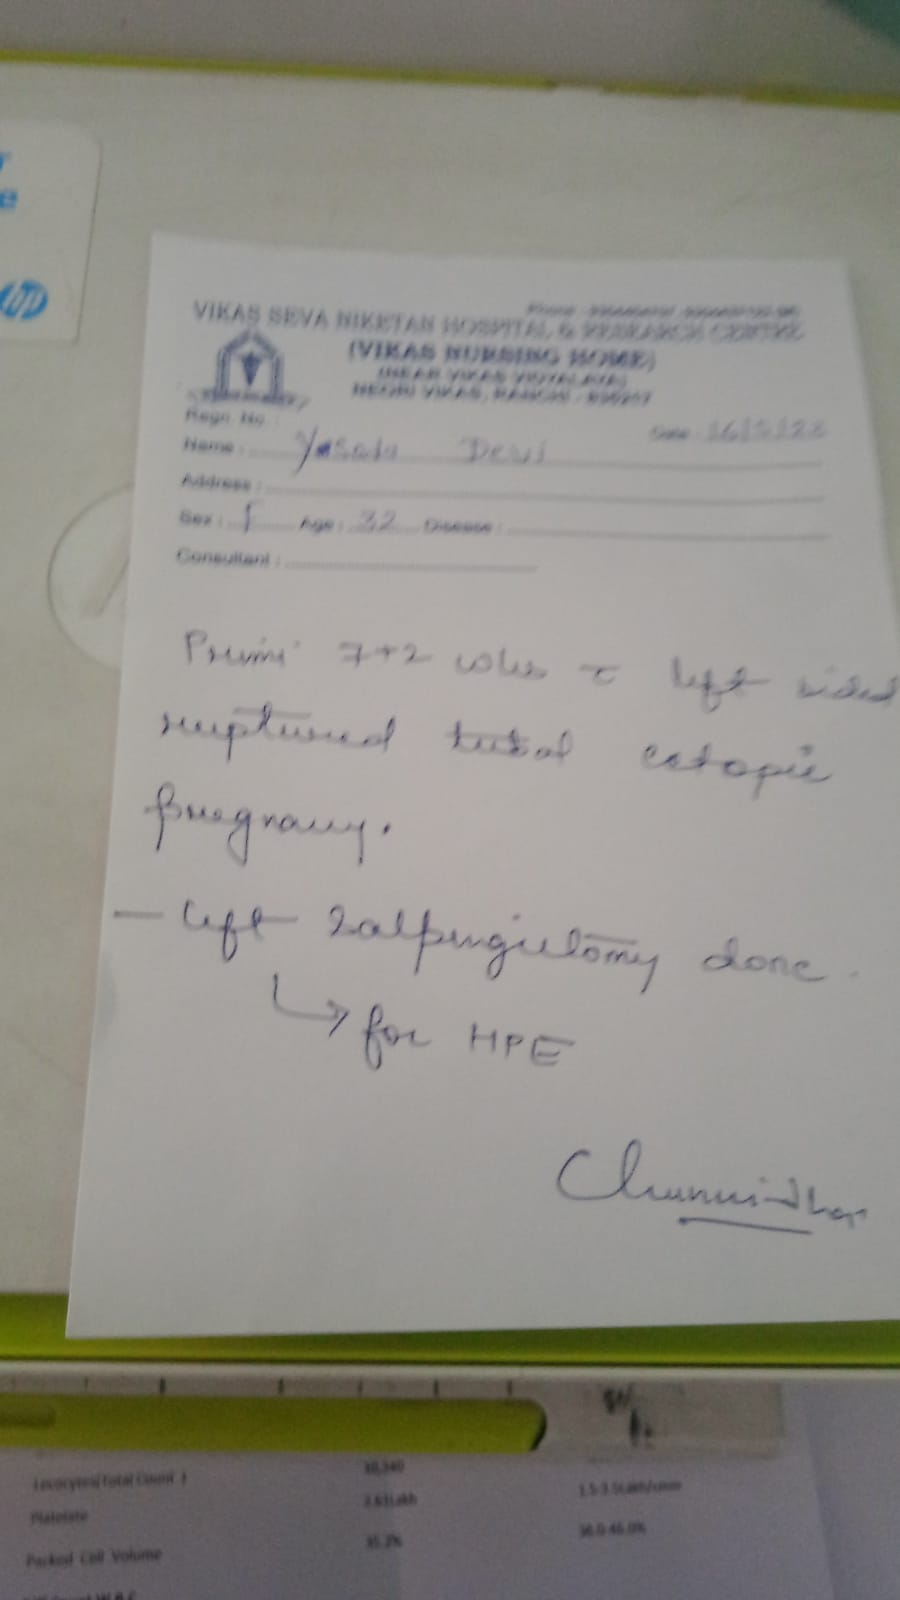 hp
VIKAS SEVA NIKETAN HOSPITAL & RESEARCH CENTRE
(VIKAS NURSING HOME)
(NEAR VIKAS VIDYALAYA)
NEORI VIKAS, RANCHI -
Regn. No. :
Date : 16/5/22
Name : Devi
Address :
Sex : F Age : 32 Disease :
Consultant :
Primi 7+2 wks c left sided
ruptured tubal ectopic
pregnancy.
— left Salpingectomy done.
↳ for HPE
Leococytes(Total Count )
Platelate 2.61Lakh 1.5-3.5Lakh/cmm
Packed Cell Volume 35.2% 36.0-46.0%